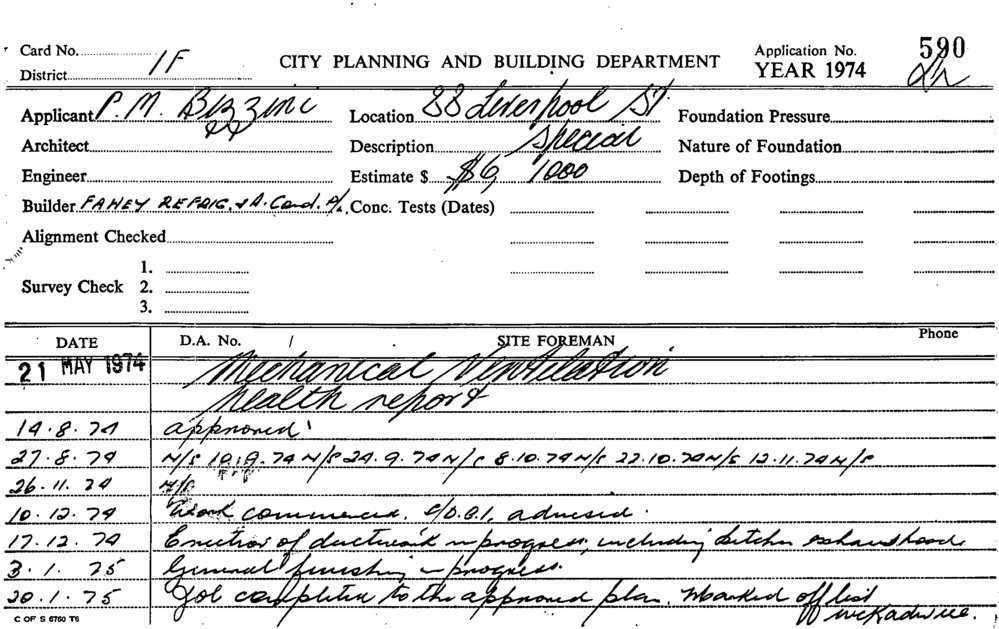 Card No. Application No. 590
District 1F CITY PLANNING AND BUILDING DEPARTMENT YEAR 1974
Applicant P. M. Bizzini Location 88 Liverpool St. Foundation Pressure
Architect Description Special Nature of Foundation
Engineer Estimate $ $6,000 Depth of Footings
Builder FAHEY REFRIG. & A. Cond. P/L. Conc. Tests (Dates)
Alignment Checked
1.
Survey Check 2.
3.
DATE D.A. No. / SITE FOREMAN Phone
21 MAY 1974 Mechanical Ventilation
health report
14.8.74 approved
27.8.74 N/S 10.9.74 N/S 24.9.74 N/S 8.10.74 N/S 22.10.74 N/S 12.11.74 N/S
26.11.74 N/S
10.12.74 Work commenced. advised.
17.12.74 Erection of ductwork in progress, including kitchen exhaust hood.
3.1.75 General finishing in progress.
20.1.75 Job completed to the approved plan. Marked off list
C OF S 6760 T6